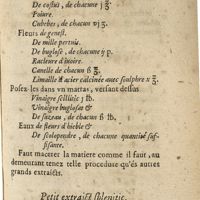 De costus, de chacune j ℥.
Poiure.
Cubebes, de chacun vj ʒ.
Fleurs de genest.
De mille pertuis.
De buglose, de chacune ij p.
Racleure d'iuoire.
Canelle de chacun ß ℥.
Limaille d'acier calcinée auec soulphre x ʒ.
Posez-les dans vn mattas, versant dessus
Vinaigre scillitic j lb.
Vinaigre buglosat &
De suzeau, de chacun ß lb.
Eaux de fleurs d'hieble &
De scolopendre, de chacune quantité suf-
fisante.
Faut macerer la matiere comme il faut, au
demeurant tenez telle procedure qu'és autres
grands extraicts.
Petit extraict splenitic.